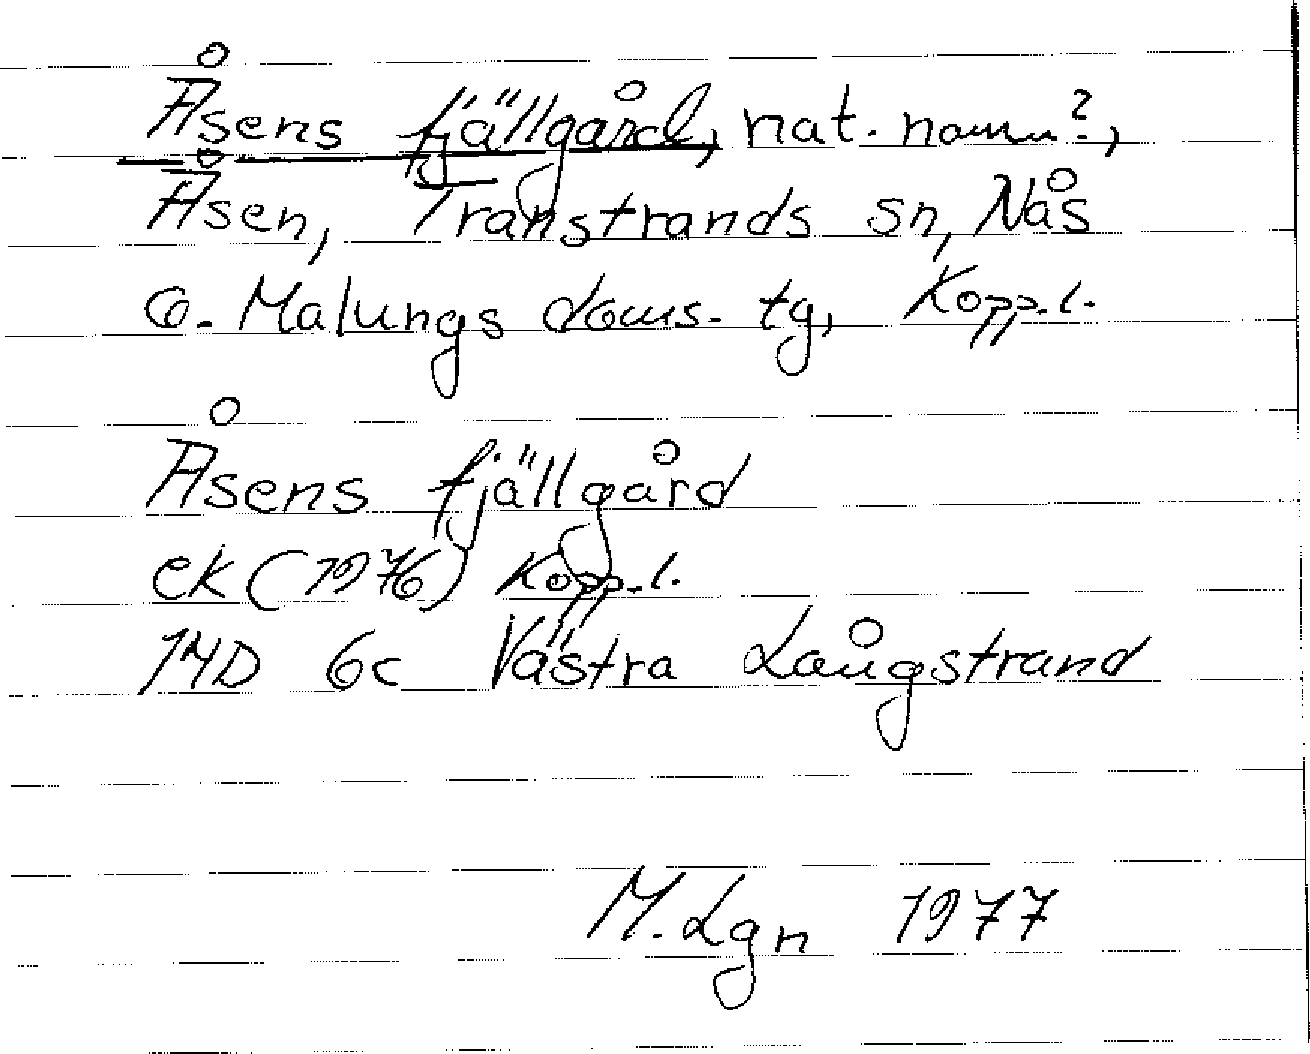 Åsens fjällgård, nat. namn?,
Åsen, Transtrands sn, Nås
o. Malungs doms. tg, Kopp. l.
Åsens fjällgård
ek (1976) Kopp. l.
14D 6c Västra Långstrand
M. Lgn 1977